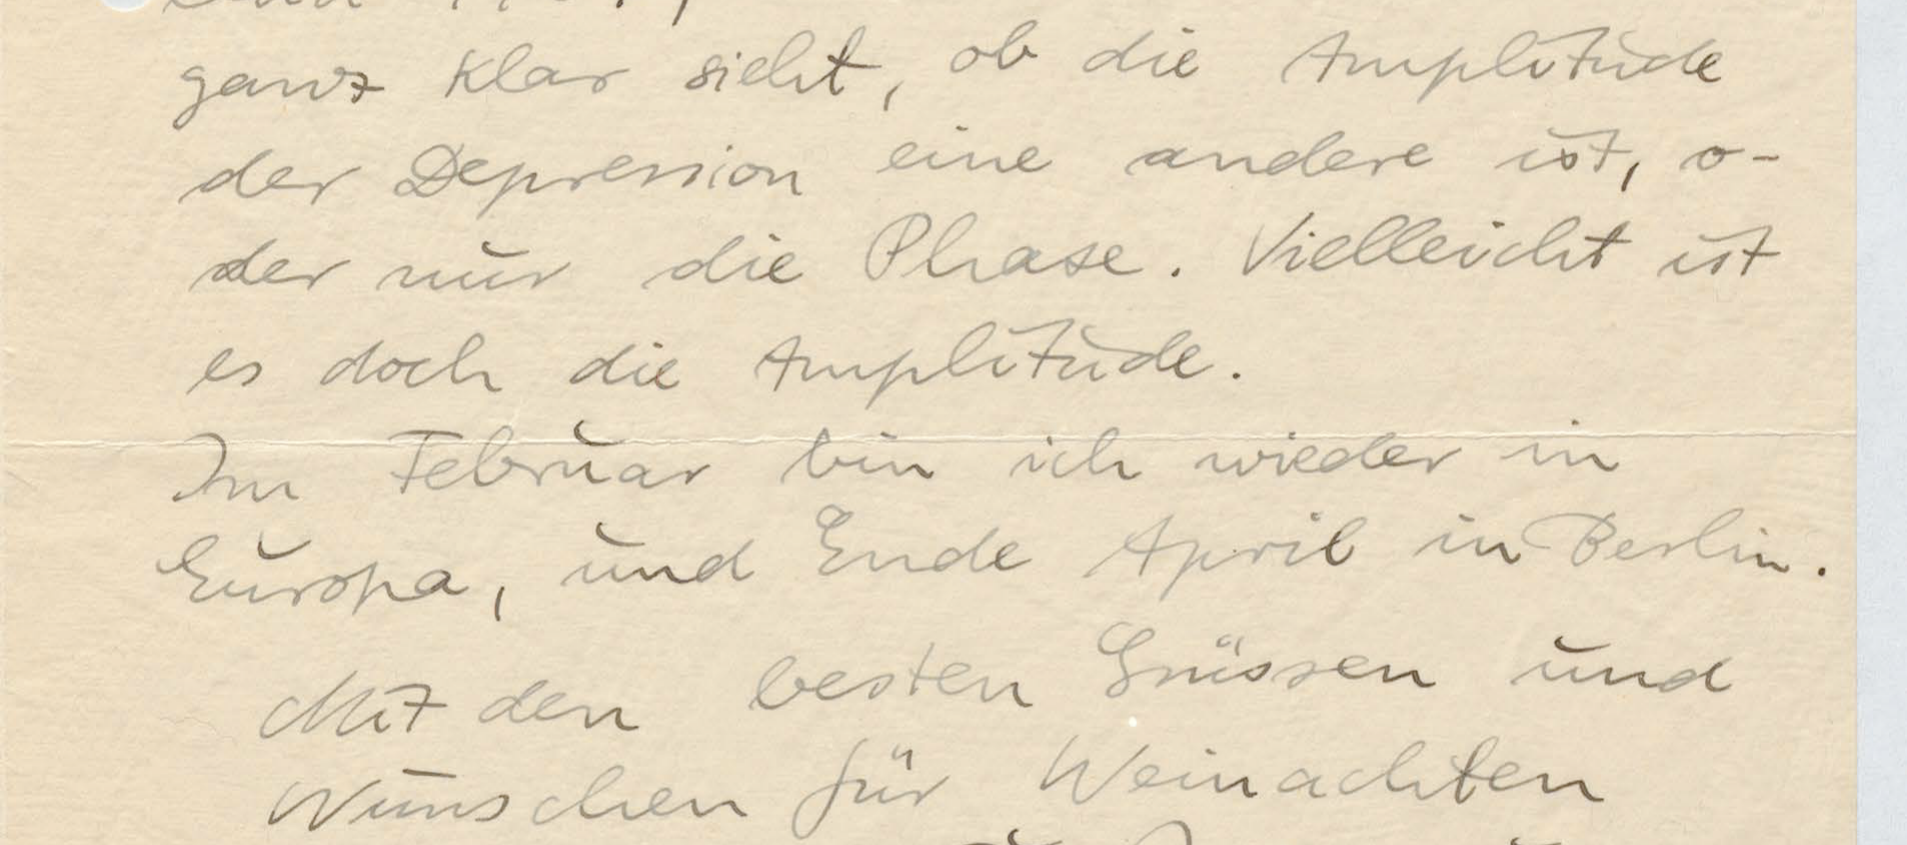 ganz klar sieht, ob die Amplitude
der Depression eine andere ist, o-
der nur die Phase. Vielleicht ist
es doch die Amplitude.
Im Februar bin ich wieder in
Europa, und Ende April in Berlin.
Mit den besten Grüssen und
Wünschen für Weinachten